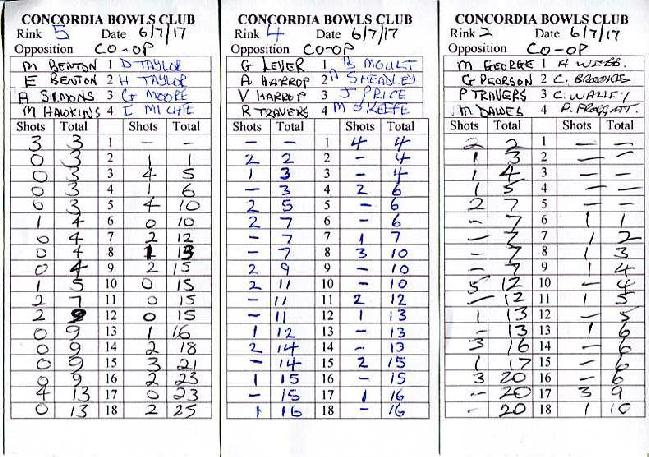 CONCORDIA BOWLS CLUB
Rink 5 Date 6/7/17
Opposition CO-OP
M BENTON 1 D TAYLOR
E BENTON 2 H TAYLOR
A SIMONS 3 G MOORE
M HAWKINS 4 E
Shots Total Shots Total
3 3 1 - -
0 3 2 1 1
0 3 3 4 5
0 3 4 1 6
0 3 5 4 10
1 4 6 0 10
0 4 7 2 12
0 4 8 1 13
0 4 9 2 15
1 5 10 0 15
2 7 11 0 15
2 9 12 0 15
0 9 13 1 16
0 9 14 2 18
0 9 15 3 21
0 9 16 2 23
4 13 17 0 23
0 13 18 2 25
CONCORDIA BOWLS CLUB
Rink 4 Date 6/7/17
Opposition CO-OP
G LEVER 1 B MOULT
A HARROP 2
V HARROP 3 J PRICE
R TRAVERS 4 M
Shots Total Shots Total
- - 1 4 4
2 2 2 - 4
1 3 3 - 4
- 3 4 2 6
2 5 5 - 6
2 7 6 - 6
- 7 7 1 7
- 7 8 3 10
2 9 9 - 10
2 11 10 - 10
- 11 11 2 12
- 11 12 1 13
1 12 13 - 13
2 14 14 - 13
- 14 15 2 15
1 15 16 - 15
- 15 17 1 16
1 16 18 - 16
CONCORDIA BOWLS CLUB
Rink 2 Date 6/7/17
Opposition CO-OP
M GEORGE 1 A
G PEARSON 2 C.
P TRAVERS 3 C.
M DAWES 4 P.
Shots Total Shots Total
2 2 1 - -
1 3 2 - -
1 4 3 - -
1 5 4 - -
2 7 5 - -
- 7 6 1 1
- 7 7 1 2
- 7 8 1 3
- 7 9 1 4
5 12 10 - 4
- 12 11 1 5
1 13 12 - 5
- 13 13 1 6
3 16 14 - 6
1 17 15 - 6
3 20 16 - 6
- 20 17 3 9
- 20 18 1 10